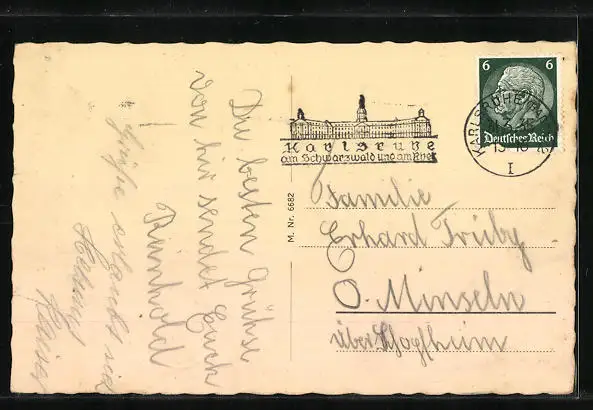 Die besten Grüße
von hir sendet Euch
Reinhold
Grüße
M. Nr. 6682
Karlsruhe
am Schwarzwald und am Rhein
KARLSRUHE
I
6 6
Deutsches Reich
Familie
Erhard Trüby
O. Minseln
über Schopfheim